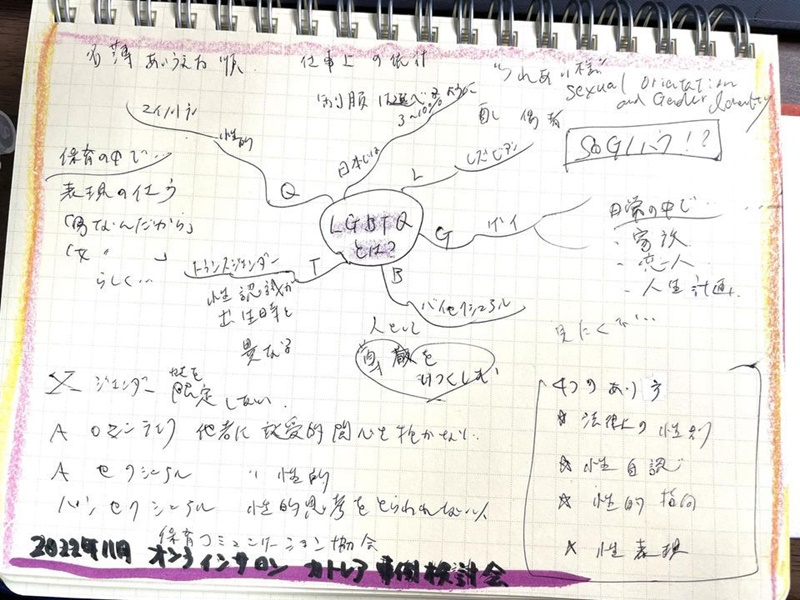 名簿あいうえお順
仕事上の依頼
"つれあい様"
sexual orientation
and Gender Identity
3~10%
日本では
配偶者
SOGIハラ!?
マイノリティ
性的
Q
L レズビアン
保育の中で…
表現の仕方
「男なんだから」
「女 〃 」
らしく…
LGBTQ
とは?
G ゲイ
日常の中で…
・家族
・恋人
・人生計画
T トランスジェンダー
性認識が
出生時と
異なる
B バイセクシュアル
人として
尊厳を
X ジェンダー 性を限定しない
A ロマンティック 他者に恋愛的関心を抱かない
A セクシュアル 〃 性的
パンセクシュアル
4つのあり方
☆ 法律上の性別
☆ 性自認
☆ 性的指向
☆ 性表現
保育コミュニケーション協会
2022年11月 オンラインサロン カトレア事例検討会